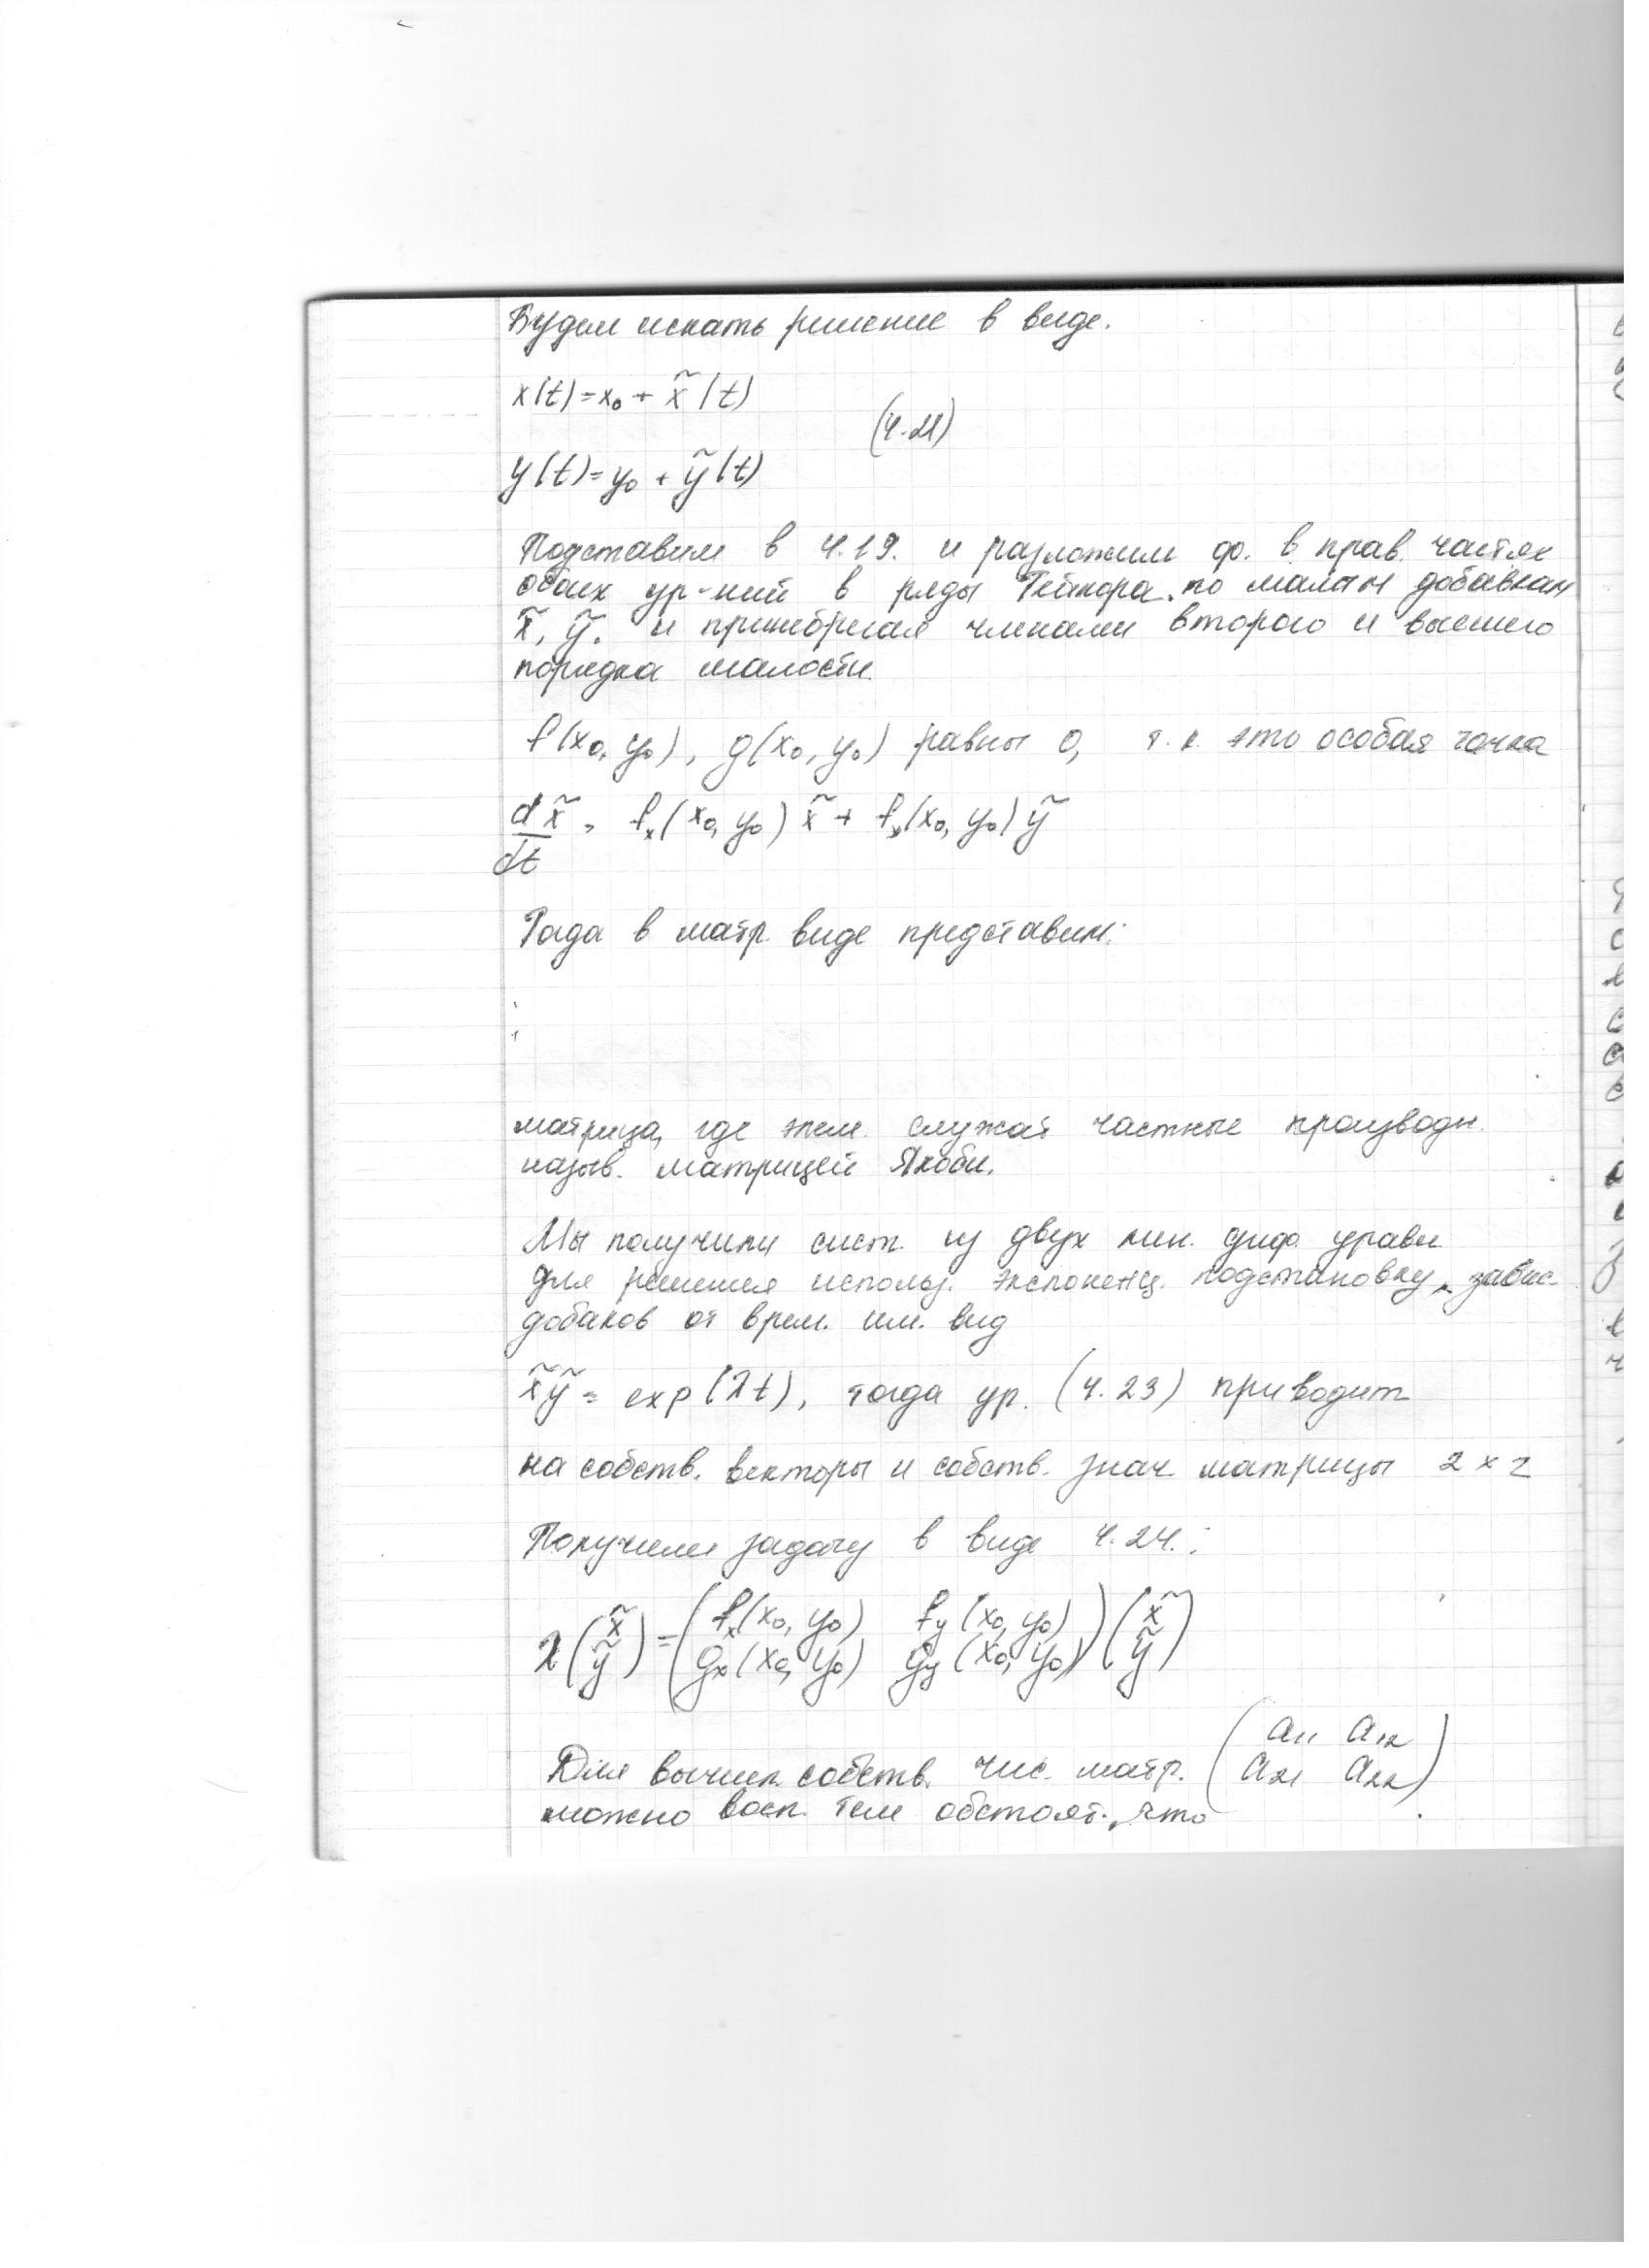 Будем искать решение в виде.
x(t)=x₀ + x̃(t)
(4.21)
y(t)=y₀ + ỹ(t)
Подставим в 4.19. и разложим ф. в прав. частях
обоих ур-ний в ряды Тейлора по малым добавкам
x̃, ỹ. и принебрегая членами второго и высшего
порядка малости
f(x₀, y₀), g(x₀, y₀) равны 0, т.к. это особая точка
dx̃/dt = fₓ(x₀, y₀) x̃ + fₓ(x₀, y₀) ỹ
Тогда в матр. виде представим:
матрица, где элем. служат частные производн.
назыв. матрицей Якоби.
Мы получили сист. из двух лин. диф. уравн
для решения использ. экспоненц. подстановку, завис.
добавков от врем. им. вид
x̃ ỹ = exp(λt), тогда ур. (4.23) приводит
на собств. векторы и собств. знач. матрицы 2 x 2
Получили задачу в виде 4.24.:
λ(x̃ ỹ) = (fₓ(x₀, y₀) f_y(x₀, y₀) gₓ(x₀, y₀) g_y(x₀, y₀)) (x̃ ỹ)
Для вычисл. собств. чис. матр. (a₁₁ a₁₂ a₂₁ a₂₂)
можно восп. тем обстоят., что